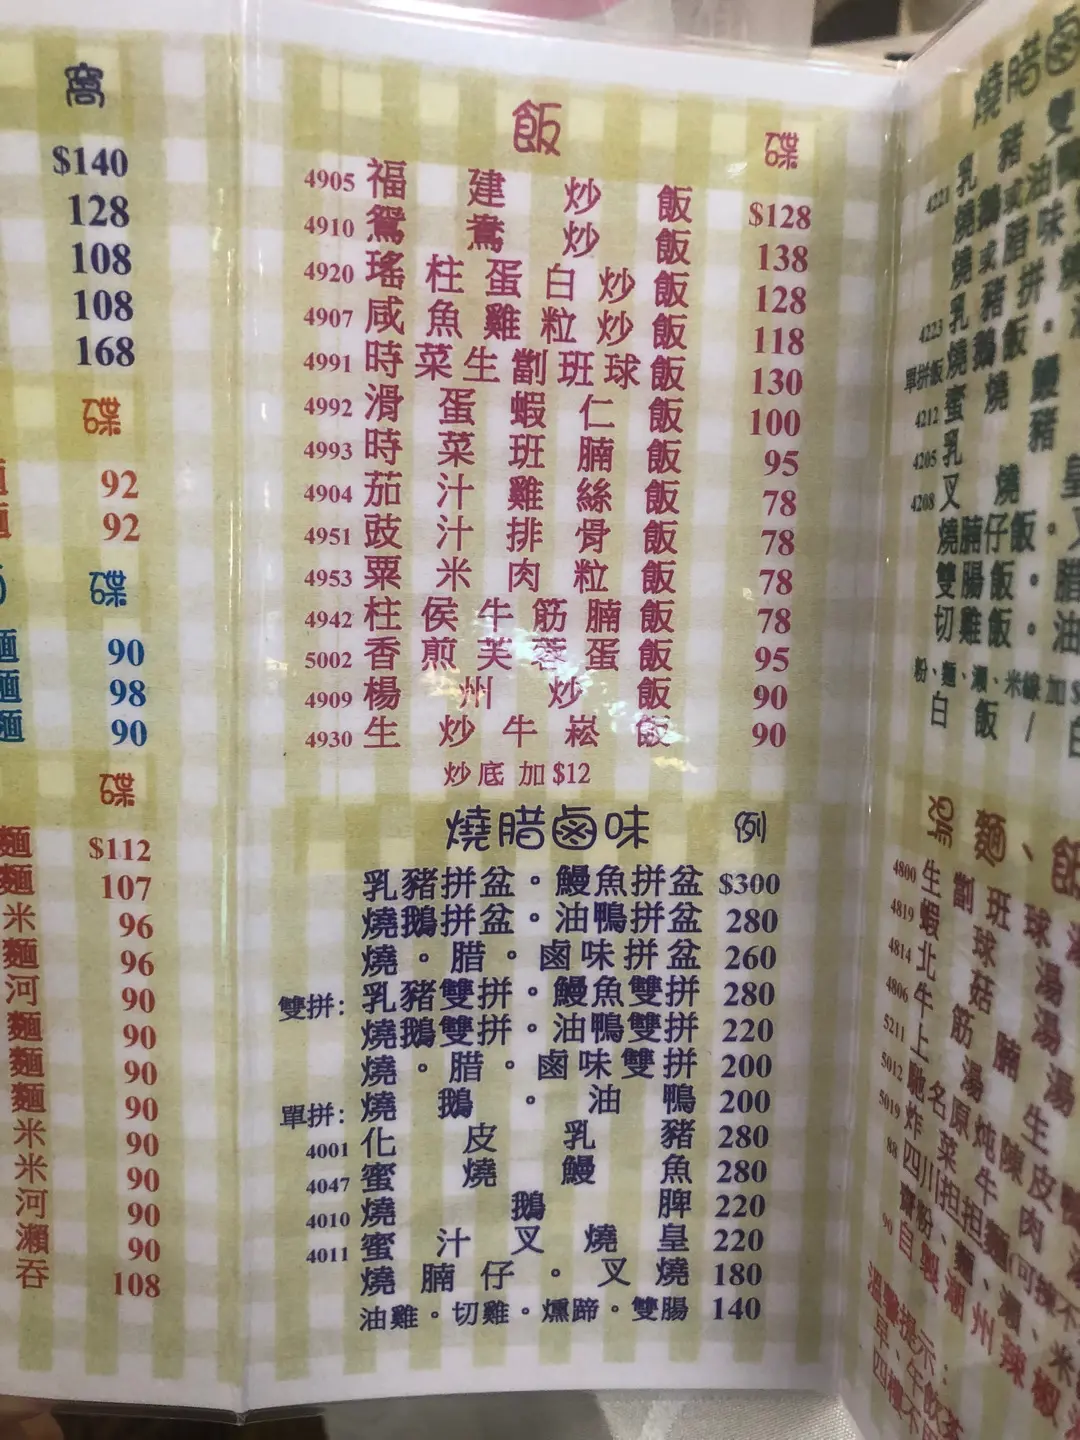 窩
$140
128
108
108
168
碟
麵 92
麵 92
碟
麵 90
麵 98
麵 90
碟
麵 $112
麵 107
米 96
麵 96
河 90
麵 90
麵 90
麵 90
米 90
米 90
河 90
瀨 90
吞 108
飯 碟
4905 福建炒飯 $128
4910 鴛鴦炒飯 138
4920 瑤柱蛋白炒飯 128
4907 咸魚雞粒炒飯 118
4991 時菜生劏班球飯 130
4992 滑蛋蝦仁飯 100
4993 時菜班腩飯 95
4904 茄汁雞絲飯 78
4951 豉汁排骨飯 78
4953 粟米肉粒飯 78
4942 柱侯牛筋腩飯 78
5002 香煎芙蓉蛋飯 95
4909 楊州炒飯 90
4930 生炒牛崧飯 90
炒底加$12
燒腊鹵味 例
乳豬拼盆。鰻魚拼盆 $300
燒鵝拼盆。油鴨拼盆 280
燒。腊。鹵味拼盆 260
雙拼: 乳豬雙拼。鰻魚雙拼 280
燒鵝雙拼。油鴨雙拼 220
燒。腊。鹵味雙拼 200
單拼: 燒鵝。油鴨 200
4001 化皮乳豬 280
4047 蜜燒鰻魚 280
4010 燒鵝脾 220
4011 蜜汁叉燒皇 220
燒腩仔。叉燒 180
油雞。切雞。燻蹄。雙腸 140
燒腊鹵
4221 乳豬雙
燒鵝或油鴨
燒或腊味
4223 乳豬拼燒
單拼飯 燒鵝飯。
4212 蜜燒鰻
4205 乳豬
4208 叉燒皇
燒腩仔飯。叉
雙腸飯。腊
切雞飯。油
粉、麵、瀨、米線加$
白飯/白
麵、飯
4800 生劏班球湯
4819 蝦球湯
4814 北菇湯
4806 牛筋腩湯
5211 上湯生
5012 馳名原炖陳皮鴨
5019 炸菜牛肉
88 四川担担麵(可揀不
齋粉、麵、瀨、米
90 自製潮州辣椒
溫馨提示:
早、午飲茶